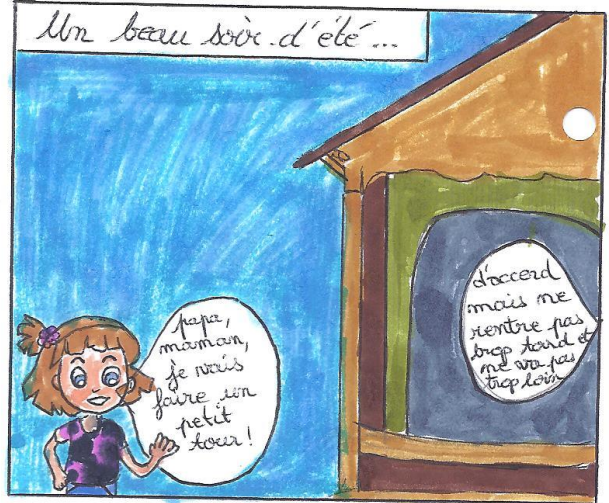 Un beau soir d'été...
papa,
maman,
je vais
faire un
petit
tour !
d'accord
mais ne
rentre pas
trop tard et
ne va pas
trop loin